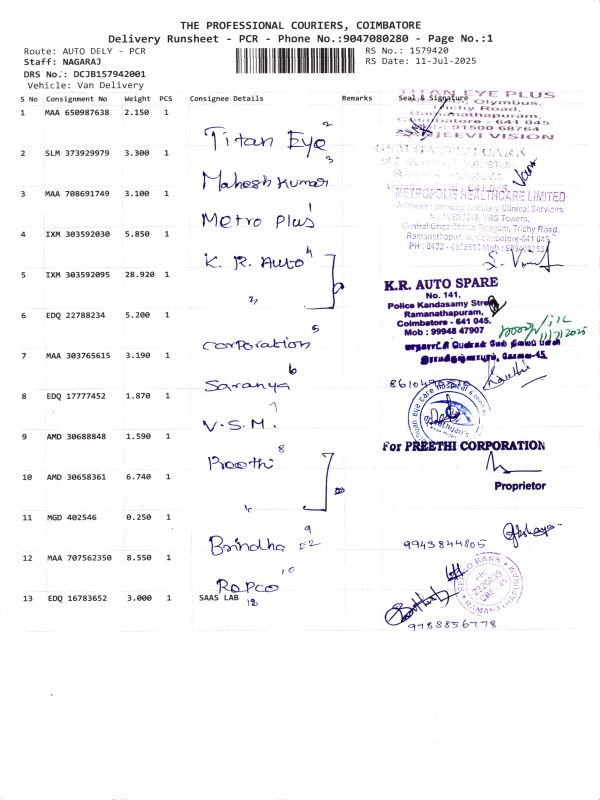 THE PROFESSIONAL COURIERS, COIMBATORE
Delivery Runsheet - PCR - Phone No.:9047080280 - Page No.:1
Route: AUTO DELY - PCR
RS No.: 1579420
Staff: NAGARAJ
RS Date: 11-Jul-2025
DRS No.: DCJB157942001
Vehicle: Van Delivery
S No Consignment No Weight PCS Consignee Details Remarks Seal & Signature
1 MAA 650987638 2.150 1 Titan Eye 2
TITAN EYE PLUS
Olymbus,
Trichy Road,
Ramanathapuram,
Coimbatore - 641 045
91500 68764
SANJEEVI VISION
2 SLM 373929979 3.300 1 Mahesh Kumar 3
3 MAA 708691749 3.100 1 Metro Plus 1
METROPOLIS HEALTHCARE LIMITED
Clinical Services
VRS Towers,
Trichy Road,
Ramanathapuram, Coimbatore-641 045
4 IXM 303592030 5.850 1 K. R. Auto 4
5 IXM 303592095 28.920 1
K.R. AUTO SPARE
No. 141,
Police Kandasamy Street
Ramanathapuram,
Coimbatore - 641 045.
Mob : 99948 47907
6 EDQ 22788234 5.200 1 corporation 5
11/7/2025
7 MAA 303765615 3.190 1 Saranya 6
8 EDQ 17777452 1.870 1 V.S.M. 7
eye care hospital
9 AMD 30688848 1.590 1 Preethi 8
For PREETHI CORPORATION
Proprietor
10 AMD 30658361 6.740 1
11 MGD 402546 0.250 1 Brindha E2 9
9943844805
12 MAA 707562350 8.550 1 Repco 10
BANK
RAMANATHAPURAM
13 EDQ 16783652 3.000 1 SAAS LAB 12
9788856778